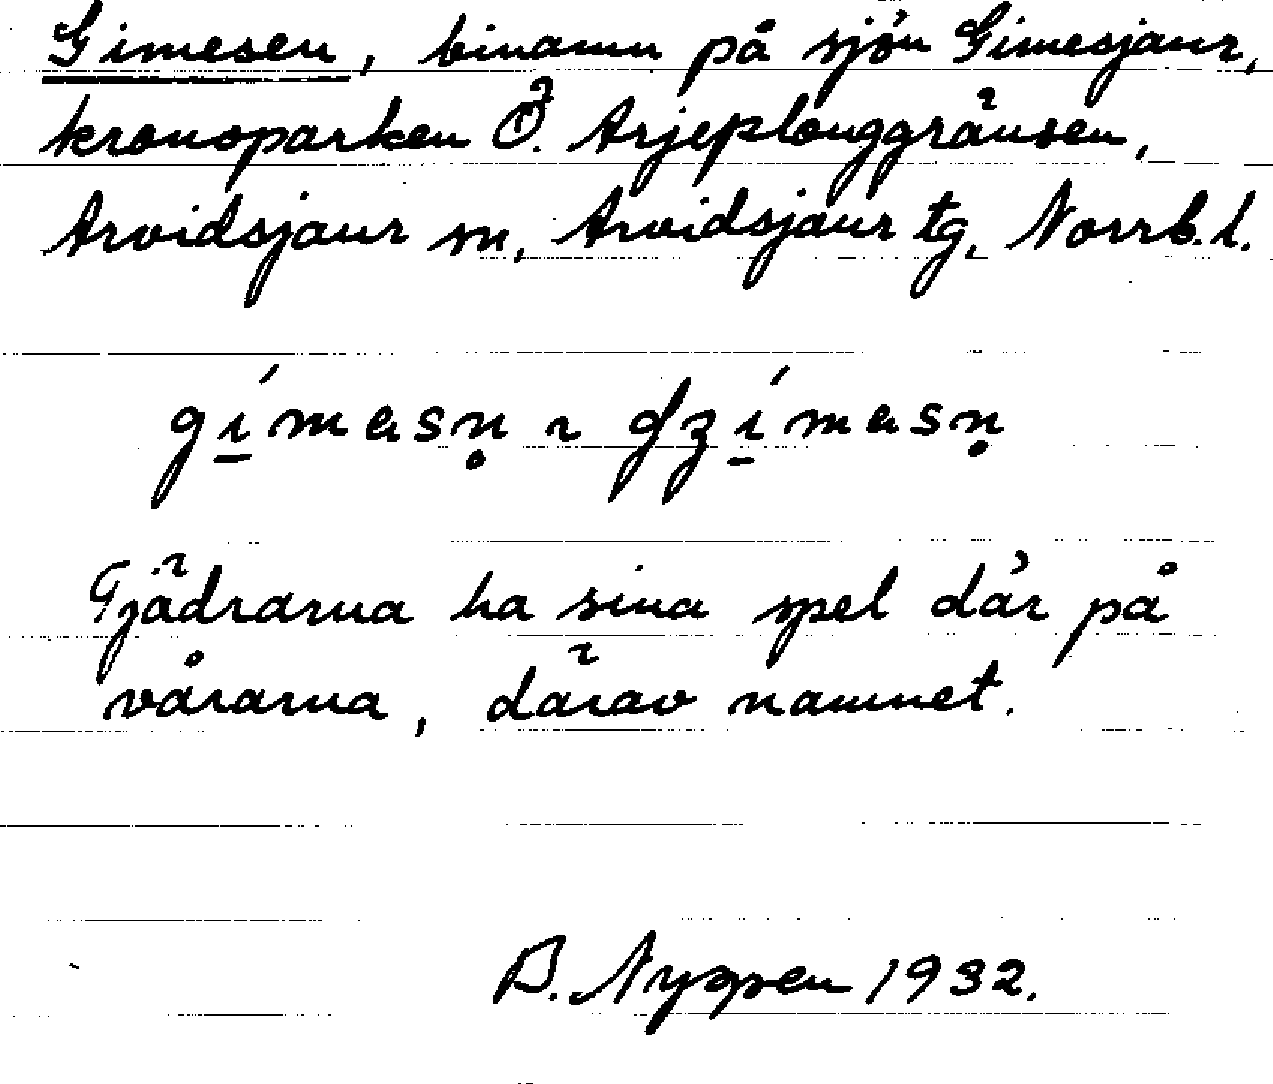 Gimesen, binamn på sjön Gimesjaur,
kronoparken Ö. Arjeplouggränsen,
Arvidsjaur sn, Arvidsjaur tg, Norrb.l.
gímɐsṇ ɿ ʤímɐsṇ
Tjädrarna ha sina spel där på
vårarna, därav namnet.
B. Nygren 1932.